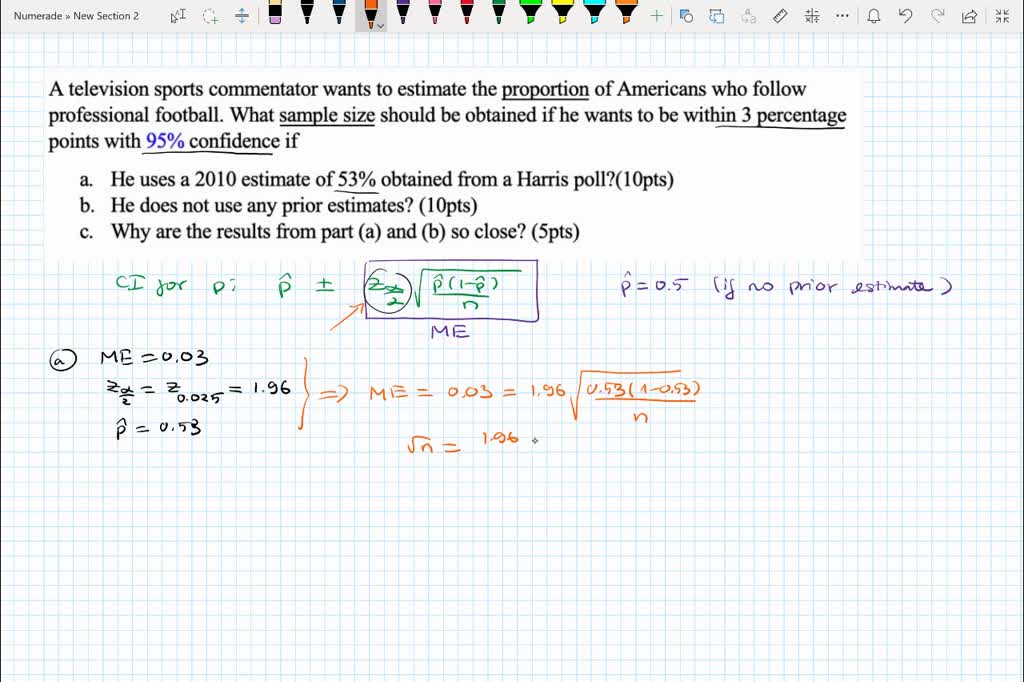 Numerade » New Section 2
A television sports commentator wants to estimate the proportion of Americans who follow
professional football. What sample size should be obtained if he wants to be within 3 percentage
points with 95% confidence if
a. He uses a 2010 estimate of 53% obtained from a Harris poll?(10pts)
b. He does not use any prior estimates? (10pts)
c. Why are the results from part (a) and (b) so close? (5pts)
CI for p: p̂ ± z_(α/2) √(p̂(1-p̂)/n) p̂ = 0.5 (if no prior estimate)
ME
(a) ME = 0.03
z_(α/2) = z_0.025 = 1.96 ⇒ ME = 0.03 = 1.96 √(0.53(1-0.53)/n)
p̂ = 0.53
√n = 1.96